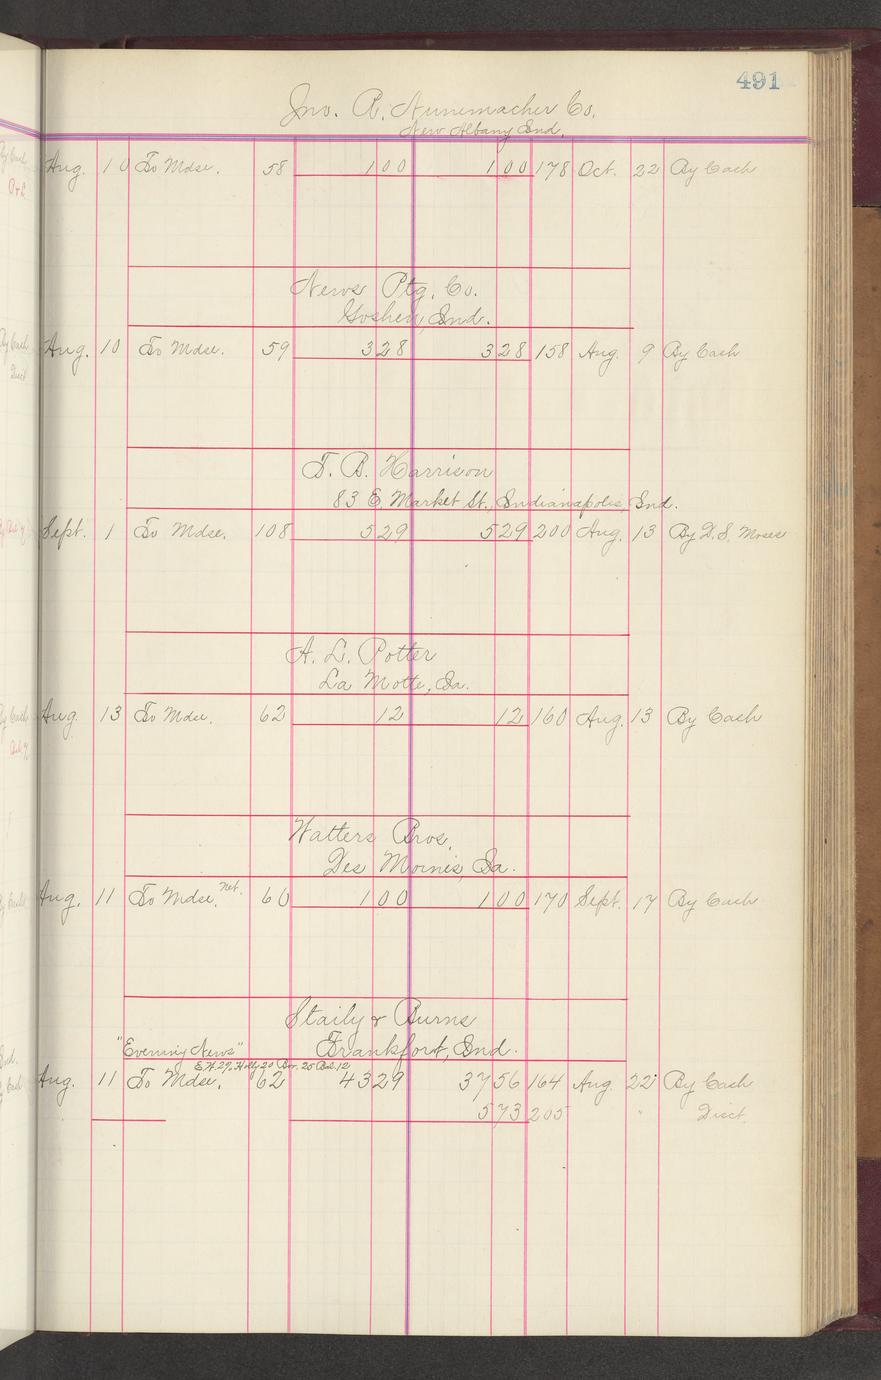 491
Jno. R. Nunemacher Co.
New Albany Ind.
Aug. 10 To Mdse. 58 1 00 1 00 178 Oct. 22 By Cash
News Ptg. Co.
Goshen, Ind.
Aug. 10 To Mdse. 59 3 28 3 28 158 Aug. 9 By Cash
T. B. Harrison
83 E. Market St., Indianapolis Ind.
Sept. 1 To Mdse. 108 5 29 5 29 200 Aug. 13 By D. S. Moses
A. L. Potter
La Motte, Ia.
Aug. 13 To Mdse. 62 12 12 160 Aug. 13 By Cash
Watters Bros.
Des Moines, Ia.
Aug. 11 To Mdse. Net. 60 1 00 1 00 170 Sept. 17 By Cash
Staily & Burns
"Evening News" Frankfort, Ind.
E.W. 29, Holly 20 Bor. 25 Bal. 12
Aug. 11 To Mdse. 62 43 29 37 56 164 Aug. 22 By Cash
5 73 205 " Disct.